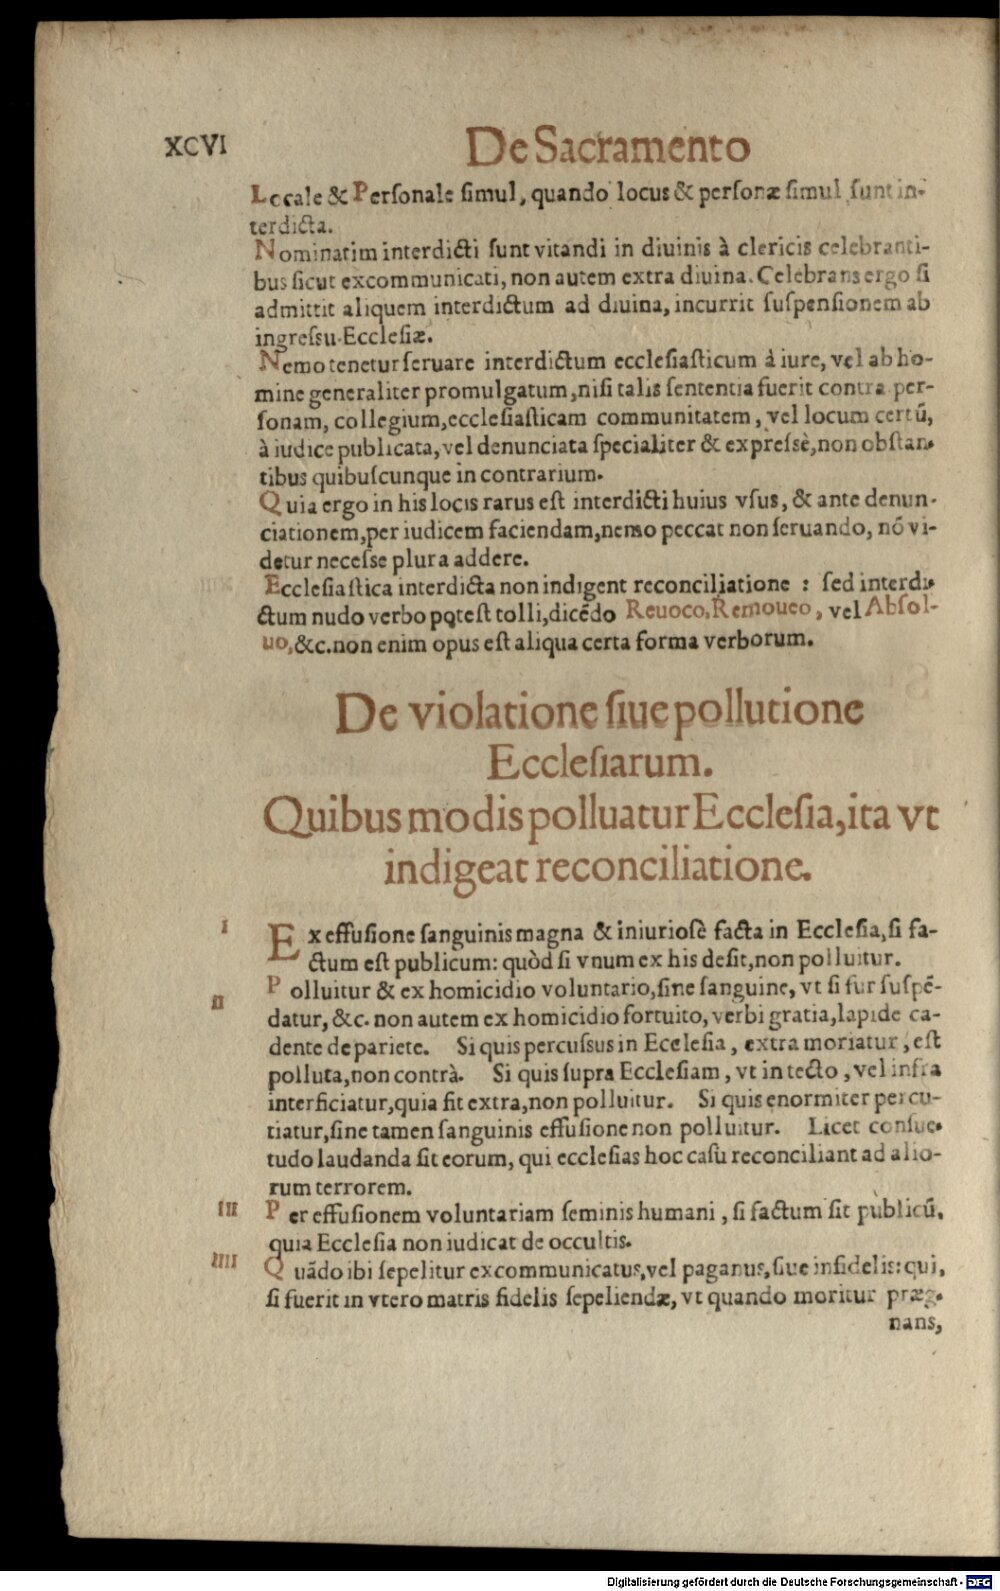 XCVI
De Sacramento
Locale & Personale ſimul, quando locus & perſonæ ſimul ſunt in-
terdicta.
Nominatim interdicti ſunt vitandi in diuinis à clericis celebranti-
bus ſicut excommunicati, non autem extra diuina. Celebrans ergo ſi
admittit aliquem interdictum ad diuina, incurrit ſuſpenſionem ab
ingreſſu Eccleſiæ.
Nemo tenetur ſeruare interdictum eccleſiaſticum à iure, vel ab ho-
mine generaliter promulgatum, niſi talis ſententia fuerit contra per-
ſonam, collegium, eccleſiaſticam communitatem, vel locum certũ,
à iudice publicata, vel denunciata ſpecialiter & expreſsè, non obſtan-
tibus quibuſcunque in contrarium.
Quia ergo in his locis rarus eſt interdicti huius vſus, & ante denun-
ciationem, per iudicem faciendam, nemo peccat non ſeruando, nõ vi-
detur neceſſe plura addere.
Eccleſiaſtica interdicta non indigent reconciliatione : ſed interdi-
ctum nudo verbo poteſt tolli, dicẽdo Reuoco, Remoueo, vel Abſol-
uo, &c. non enim opus eſt aliqua certa forma verborum.
De violatione ſiue pollutione
Eccleſiarum.
Quibus modis polluatur Eccleſia, ita vt
indigeat reconciliatione.
I
Ex effuſione ſanguinis magna & iniurioſè facta in Eccleſia, ſi fa-
ctum eſt publicum: quòd ſi vnum ex his deſit, non polluitur.
II
Polluitur & ex homicidio voluntario, ſine ſanguine, vt ſi fur ſuſpẽ-
datur, &c. non autem ex homicidio fortuito, verbi gratia, lapide ca-
dente de pariete. Si quis percuſſus in Eccleſia, extra moriatur, eſt
polluta, non contrà. Si quis ſupra Eccleſiam, vt in tecto, vel infra
interficiatur, quia fit extra, non polluitur. Si quis enormiter percu-
tiatur, ſine tamen ſanguinis effuſione non polluitur. Licet conſue-
tudo laudanda ſit eorum, qui eccleſias hoc caſu reconciliant ad alio-
rum terrorem.
III
Per effuſionem voluntariam ſeminis humani, ſi factum ſit publicũ,
quia Eccleſia non iudicat de occultis.
IIII
Quãdo ibi ſepelitur excommunicatus, vel paganus, ſiue infidelis: qui,
ſi fuerit in vtero matris fidelis ſepeliendæ, vt quando moritur præg-
nans,
Digitalisierung gefördert durch die Deutsche Forschungsgemeinschaft - DFG